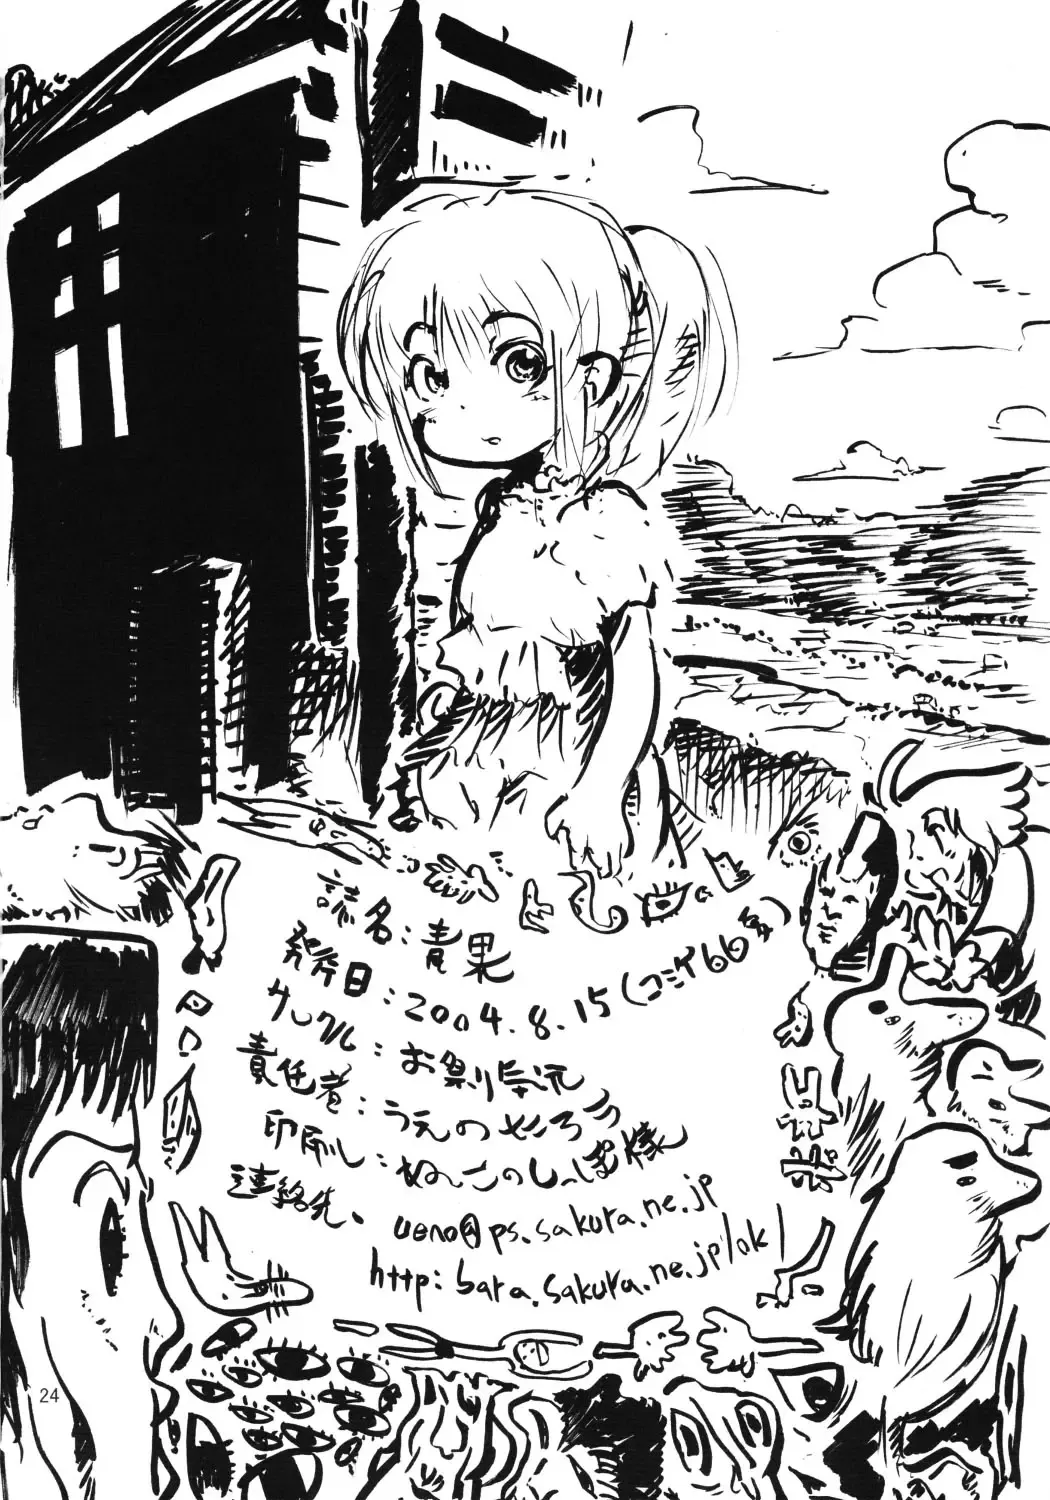 誌名:青果
発行日:2004.8.15(コミケ66夏)
サークル:お祭り年況
責任者:うえのせころう
印刷:ねこのしっぽ様
連絡先、ueno@ps.sakura.ne.jp
http:bara.sakura.ne.jp/ok/
24